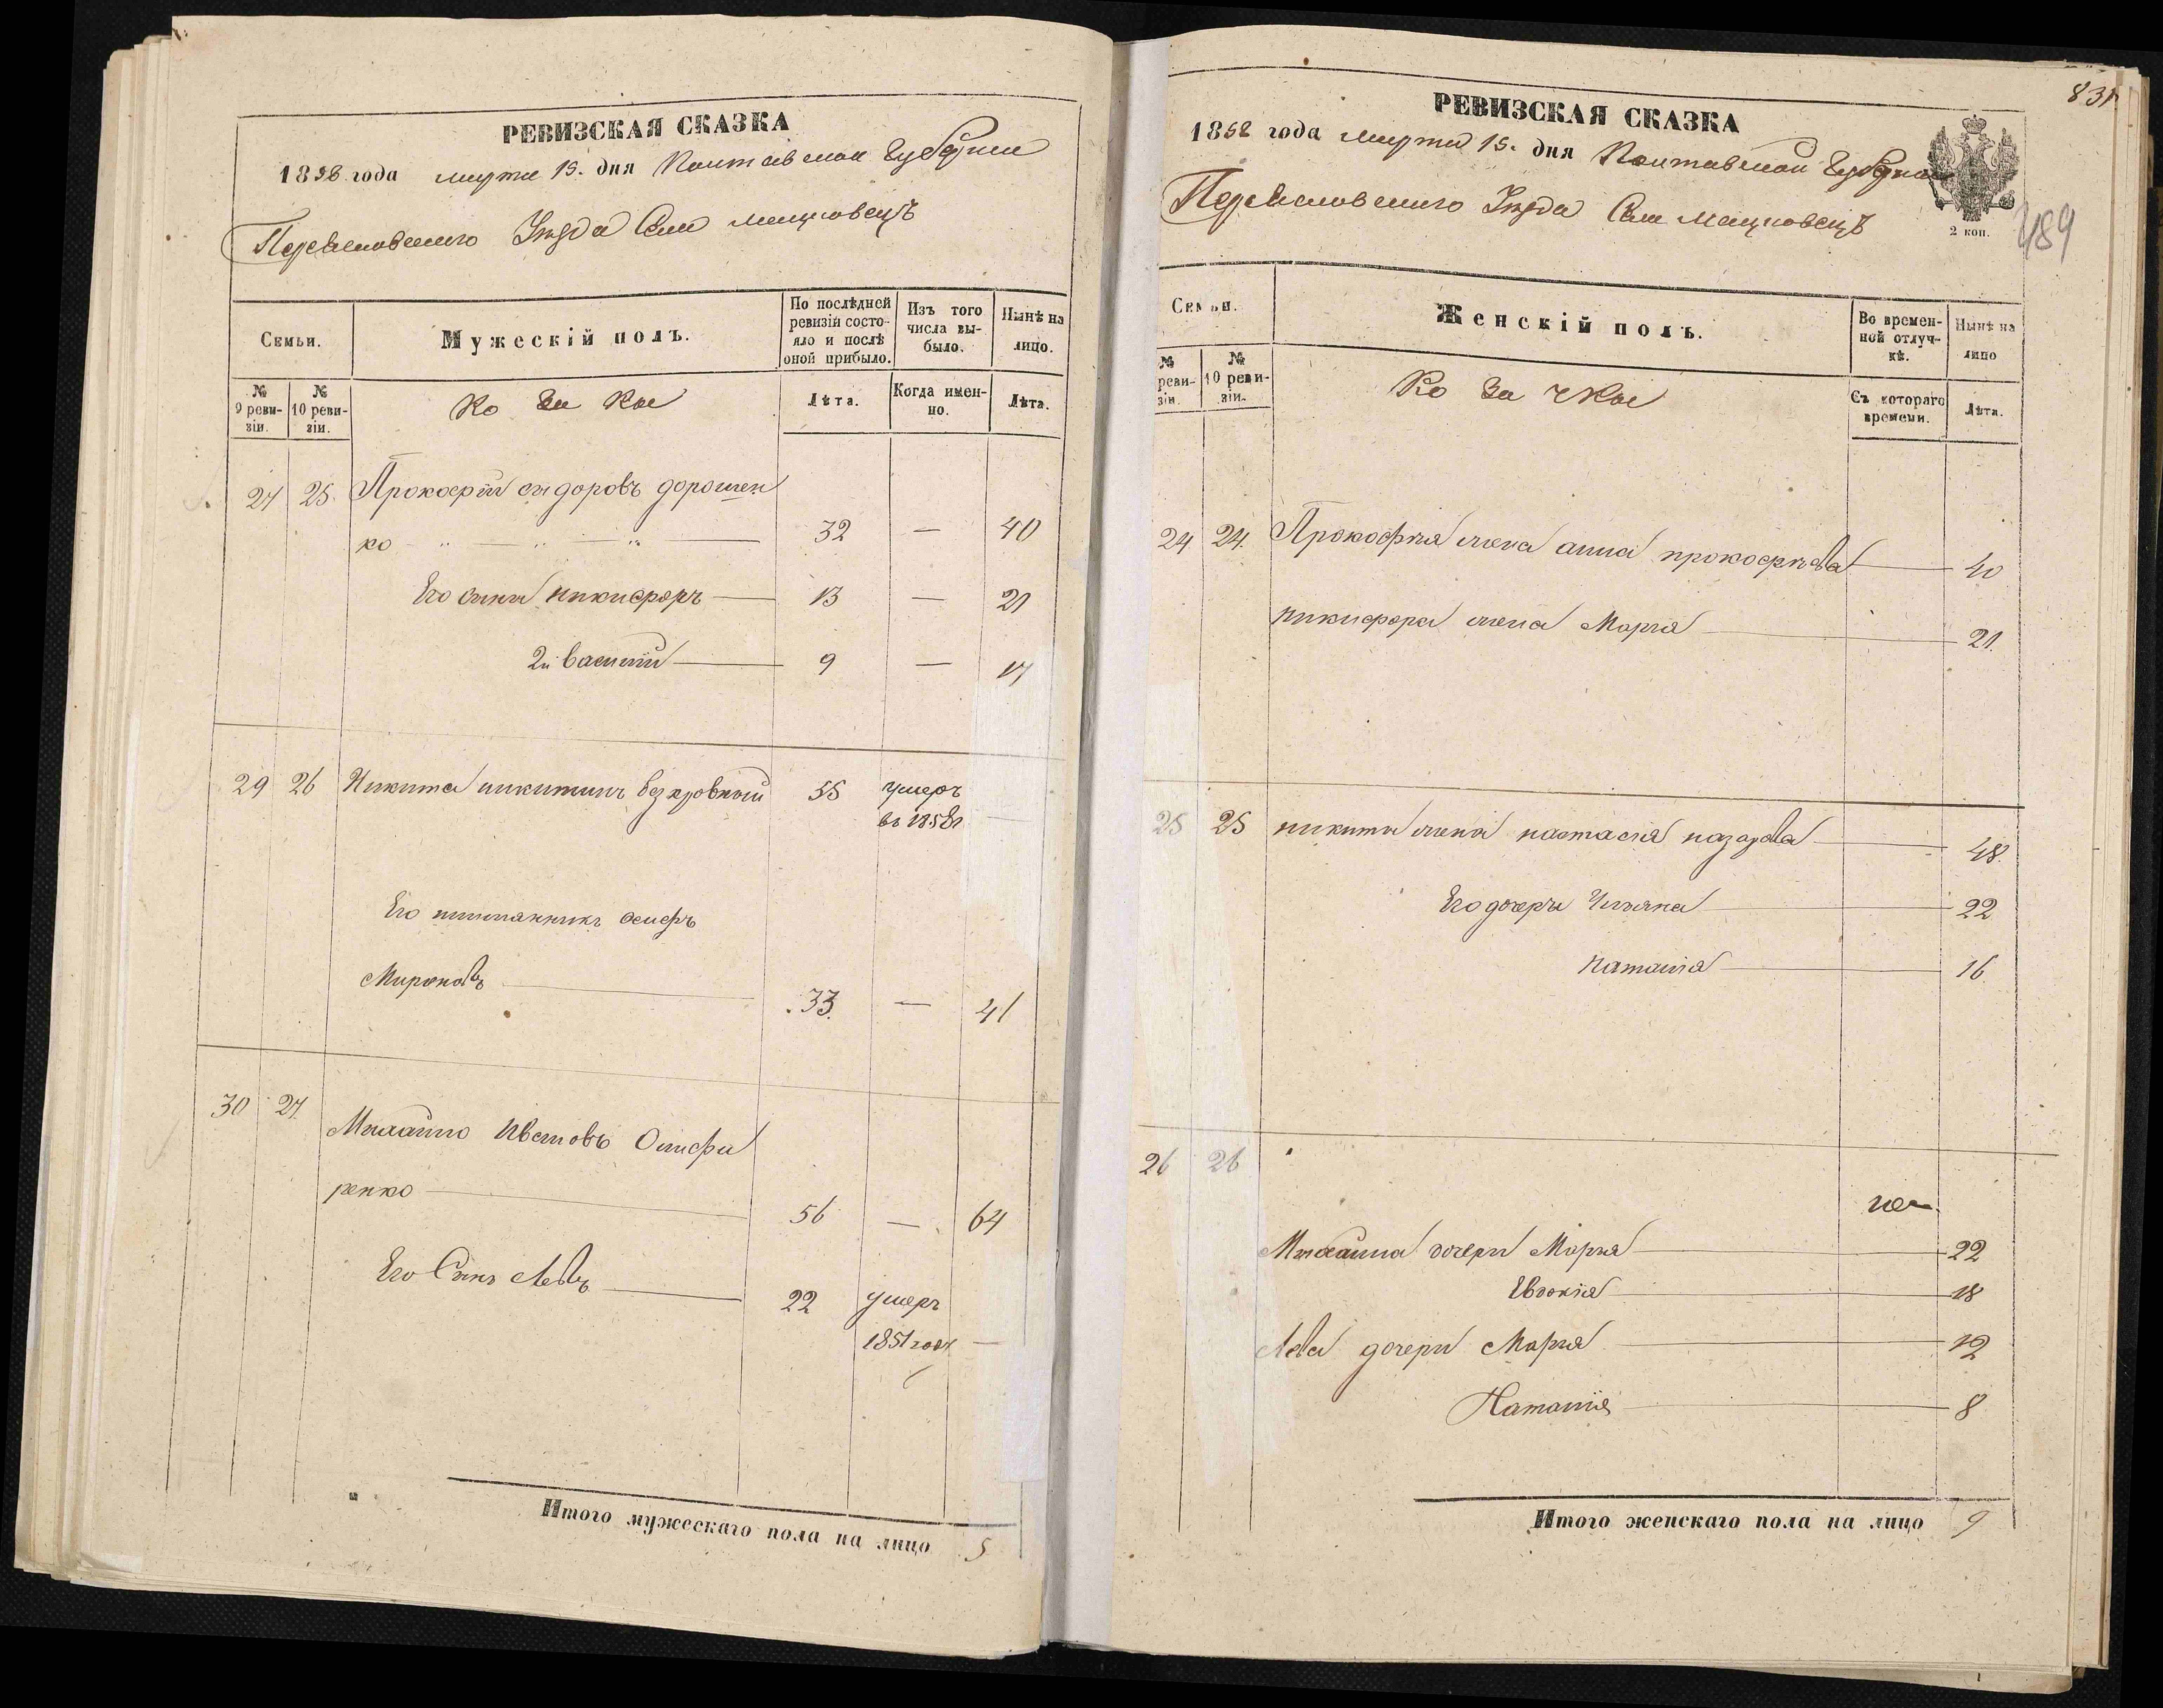 РЕВИЗСКАЯ СКАЗКА
1858 года марта 15. дня Полтавской Губернии
Переяславского Уезда Села
Семьи.
Мужескій полъ.
По послѣдней ревизіи состояло и послѣ оной прибыло.
Изъ того числа выбыло.
Нынѣ на лицо.
№ 9 ревизіи.
№ 10 ревизіи.
Ко за ки
Лѣта.
Когда именно.
Лѣта.
27 25. Прокофій сидоровъ дорошен
ко 32 — 40
Его сыны никифоръ 13 — 21
2й василій 9 — 17
29 26 Никита никитинъ безкровный 55 умеръ
въ 1858г —
Его племянникъ осифъ
Мироновъ 33. — 41
30 27. Михайло Ивстовъ Олифи
ренко 56 — 64
Его Сынъ Левъ 22 умеръ
1851 года —
Итого мужескаго пола на лицо 5
831
РЕВИЗСКАЯ СКАЗКА
1858 года марта 15. дня Полтавской Губернии
Переяславского Уезда Села
2 коп.
489
Семьи.
Женскій полъ.
Во временной отлучкѣ.
Нынѣ на лицо
№ ревизіи.
№ 10 ревизіи.
Ко за чки
Съ котораго времени.
Лѣта.
24 24. Прокофия жена анна прокофиева 40
никифора жена Мария 21.
25 25 никиты жена настасия назарова 48.
Его дочери Улияна 22
наталия 16.
26 26
Михайла дочери Мария 22
Евдокия 18
Лева дочери Мария 12
Наталия 8
Итого женскаго пола на лицо 9